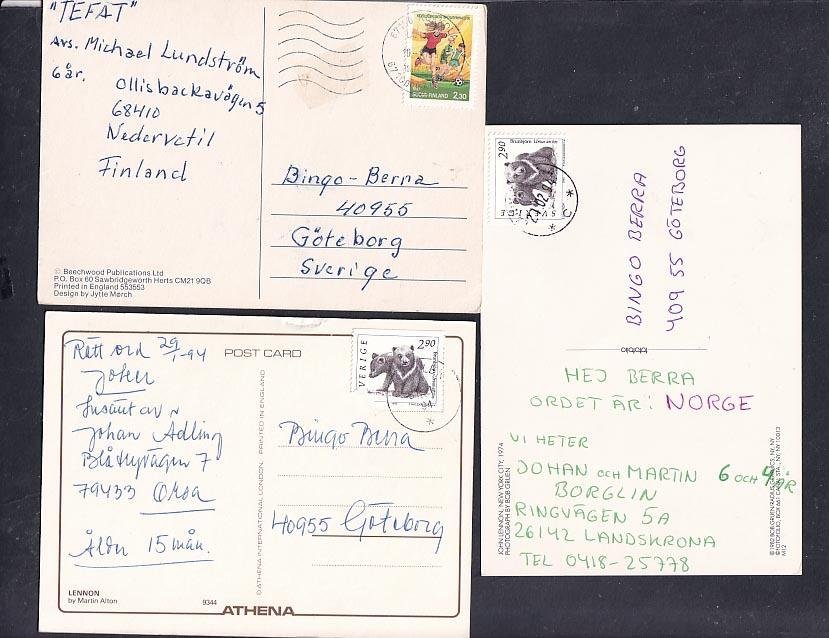 "TEFAT"
Avs. Michael Lundström
6 år.
Ollisbackavägen 5
68410
Nedervetil
Finland
SUOMI FINLAND 2,30
Bingo-Berra
40955
Göteborg
Sverige
© Beechwood Publications Ltd
P.O. Box 60 Sawbridgeworth Herts CM21 9QB
Printed in England 553553
Design by Jytte Mørch
Rätt ord 29/1-94
POST CARD
SVERIGE 2,90
Insänt av
Johan Adling
Blåtrystigen 7
79433 Orsa
Ålder 15 mån.
Bingo Berra
40955 Göteborg
© ATHENA INTERNATIONAL LONDON. PRINTED IN ENGLAND
LENNON
by Martin Alton
9344
ATHENA
2,90
SVERIGE
BINGO BERRA
409 55 GÖTEBORG
HEJ BERRA
ORDET ÄR: NORGE
VI HETER
JOHAN och MARTIN 6 och 4 ÅR
BORGLIN
RINGVÄGEN 5A
26142 LANDSKRONA
TEL 0418-25778
JOHN LENNON, NEW YORK CITY, 1974
PHOTOGRAPH BY BOB GRUEN